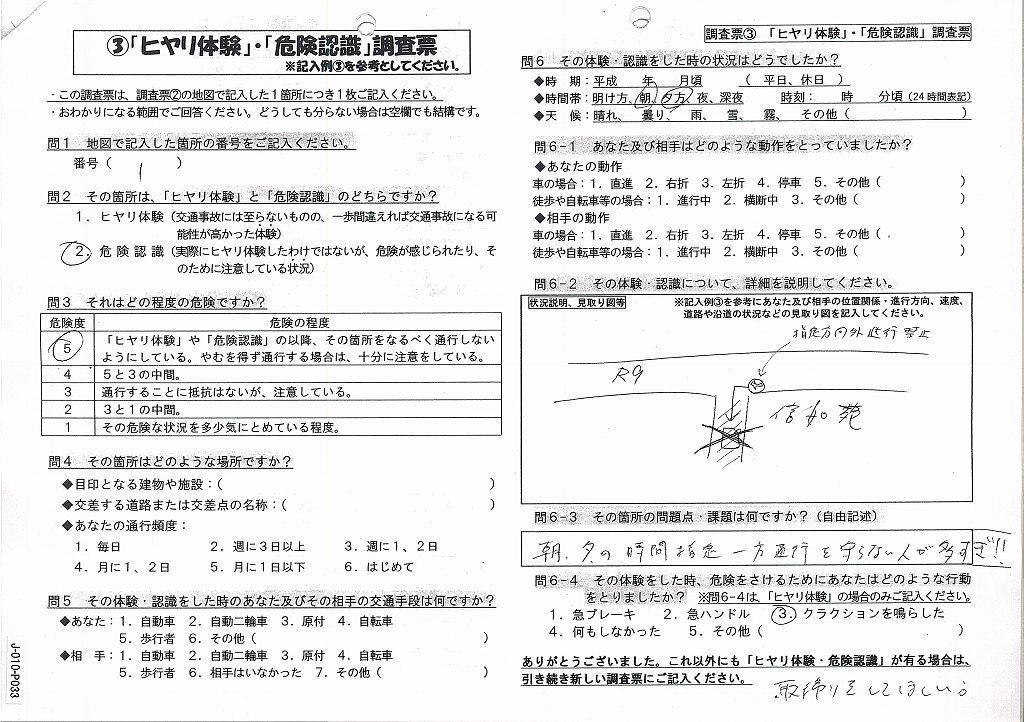 ③「ヒヤリ体験」・「危険認識」調査票
※記入例③を参考としてください。
・この調査票は、調査票②の地図で記入した1箇所につき1枚ご記入ください。
・おわかりになる範囲でご回答ください。どうしても分らない場合は空欄でも結構です。
問1 地図で記入した箇所の番号をご記入ください。
番号( 1 )
問2 その箇所は、「ヒヤリ体験」と「危険認識」のどちらですか?
1.ヒヤリ体験(交通事故には至らないものの、一歩間違えれば交通事故になる可
能性が高かった体験)
2.危険認識(実際にヒヤリ体験したわけではないが、危険が感じられたり、そ
のために注意している状況)
問3 それはどの程度の危険ですか?
危険度 危険の程度
5 「ヒヤリ体験」や「危険認識」の以降、その箇所をなるべく通行しない
ようにしている。やむを得ず通行する場合は、十分に注意をしている。
4 5と3の中間。
3 通行することに抵抗はないが、注意している。
2 3と1の中間。
1 その危険な状況を多少気にとめている程度。
問4 その箇所はどのような場所ですか?
◆目印となる建物や施設:( )
◆交差する道路または交差点の名称:( )
◆あなたの通行頻度:
1.毎日 2.週に3日以上 3.週に1、2日
4.月に1、2日 5.月に1日以下 6.はじめて
問5 その体験・認識をした時のあなた及びその相手の交通手段は何ですか?
◆あなた:1.自動車 2.自動二輪車 3.原付 4.自転車
5.歩行者 6.その他( )
◆相 手:1.自動車 2.自動二輪車 3.原付 4.自転車
5.歩行者 6.相手はいなかった 7.その他( )
J-010-P033
調査票③ 「ヒヤリ体験」・「危険認識」調査票
問6 その体験・認識をした時の状況はどうでしたか?
◆時 期:平成 年 月頃 ( 平日、休日 )
◆時間帯:明け方、朝、夕方、夜、深夜 時刻: 時 分頃(24時間表記)
◆天 候:晴れ、 曇り、 雨、 雪、 霧、 その他( )
問6-1 あなた及び相手はどのような動作をとっていましたか?
◆あなたの動作
車の場合:1.直進 2.右折 3.左折 4.停車 5.その他( )
徒歩や自転車等の場合:1.進行中 2.横断中 3.その他( )
◆相手の動作
車の場合:1.直進 2.右折 3.左折 4.停車 5.その他( )
徒歩や自転車等の場合:1.進行中 2.横断中 3.その他( )
問6-2 その体験・認識について、詳細を説明してください。
状況説明、見取り図等 ※記入例③を参考にあなた及び相手の位置関係・進行方向、速度、
道路や沿道の状況などの見取り図を記入してください。
指定方向外進行禁止
R9
信如苑
問6-3 その箇所の問題点・課題は何ですか?(自由記述)
朝、夕の時間指定一方通行を守らない人が多すぎ!!
問6-4 その体験をした時、危険をさけるためにあなたはどのような行動
をとりましたか? ※問6-4は、「ヒヤリ体験」の場合のみご記入ください。
1.急ブレーキ 2.急ハンドル 3.クラクションを鳴らした
4.何もしなかった 5.その他( )
ありがとうございました。これ以外にも「ヒヤリ体験・危険認識」が有る場合は、
引き続き新しい調査票にご記入ください。
取締りをしてほしい。